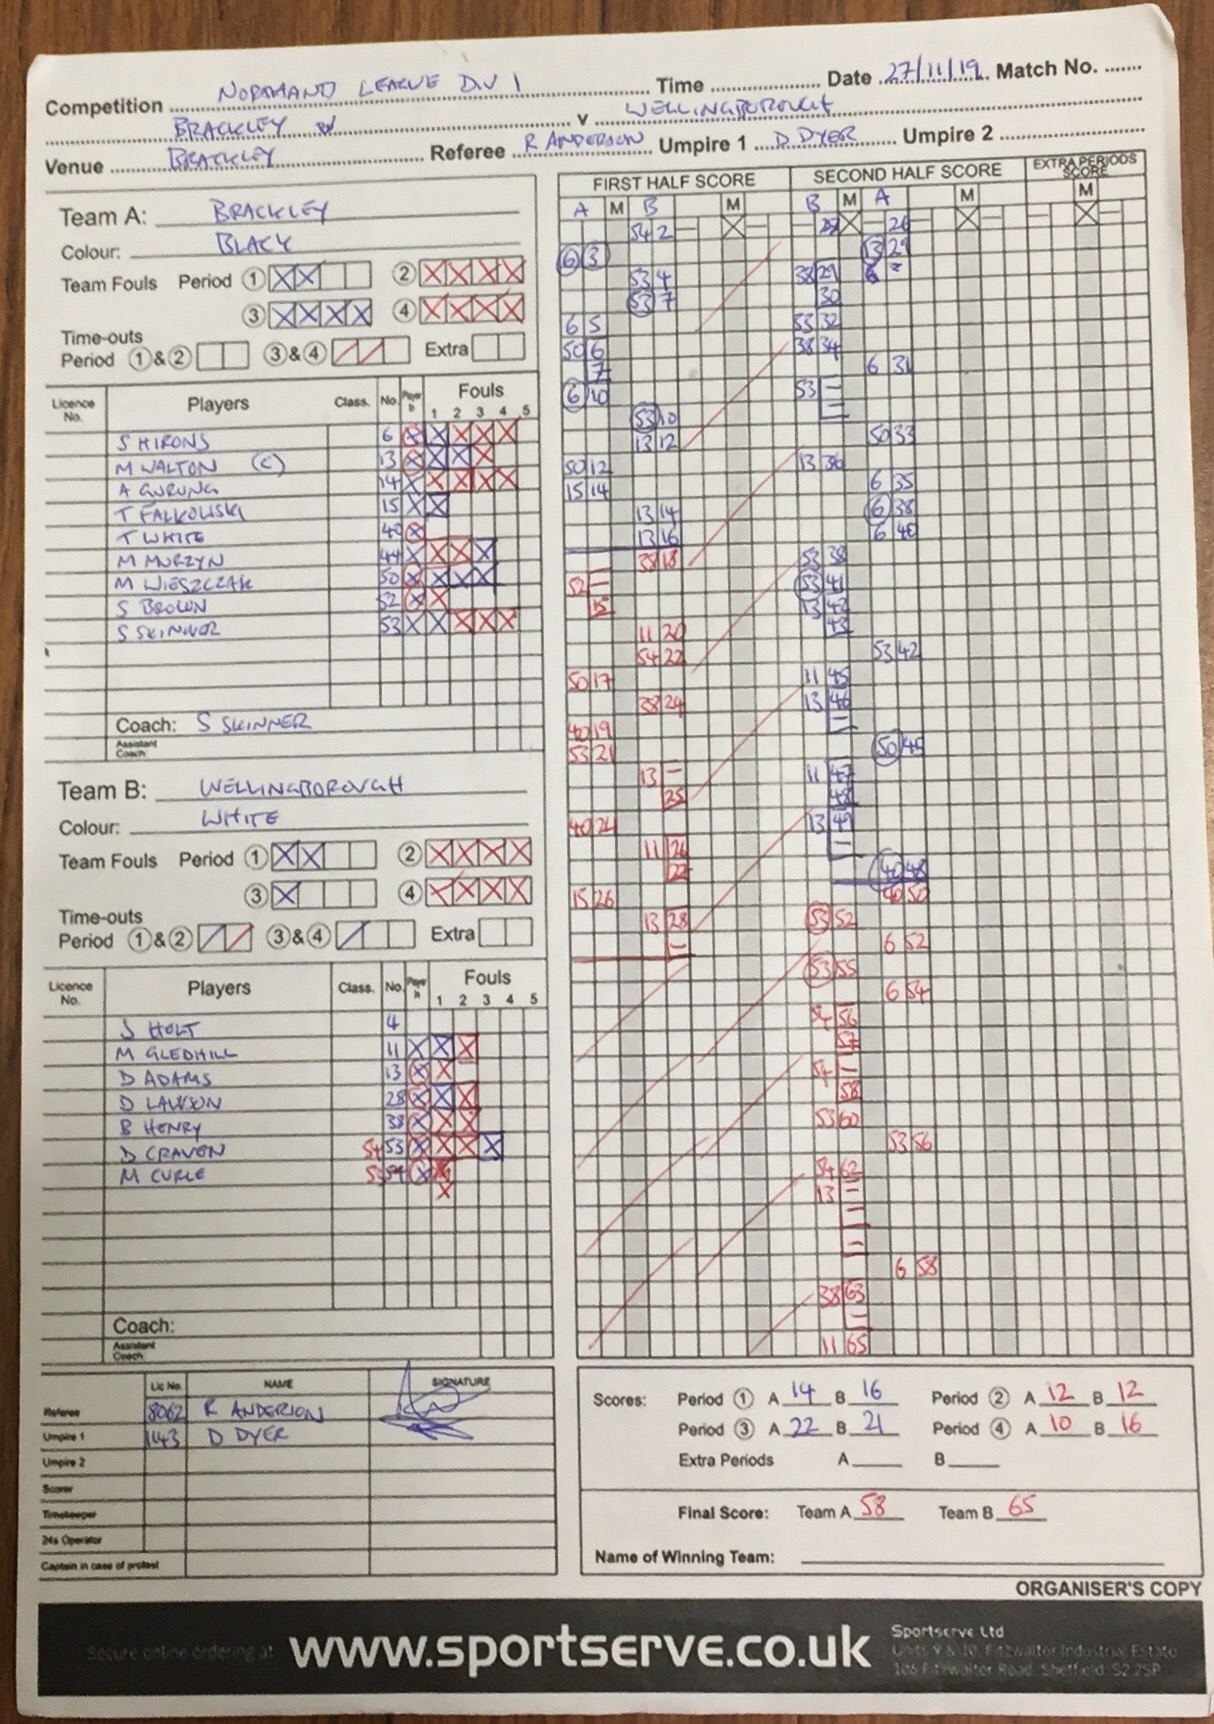 Competition NORMAND LEAGUE DIV 1 Time Date 27/11/19 Match No.
BRACKLEY v WELLINGBOROUGH
Venue BRACKLEY Referee R ANDERSON Umpire 1 D DYER Umpire 2
Team A: BRACKLEY
Colour: BLACK
Team Fouls Period 1 2
3 4
Time-outs
Period 1 & 2 3 & 4 Extra
Licence No. Players Class. No. Player In Fouls 1 2 3 4 5
S HIRONS 6
M WALTON (C) 13
A GURUNG 14
T FALKOWSKI 15
T WHITE 40
M MURZYN 44
M WIESZCZAK 50
S BROWN 52
S SKINNER 53
Coach: S SKINNER
Assistant Coach:
Team B: WELLINGBOROUGH
Colour: WHITE
Team Fouls Period 1 2
3 4
Time-outs
Period 1 & 2 3 & 4 Extra
Licence No. Players Class. No. Player In Fouls 1 2 3 4 5
S HOLT 4
M GLEDHILL 11
D ADAMS 13
D LAWSON 28
B HENRY 38
D CRAVEN 54 53
M CURLE 53 54
Coach:
Assistant Coach:
Lic No. NAME SIGNATURE
Referee 8062 R ANDERSON
Umpire 1 1143 D DYER
Umpire 2
Scorer
Timekeeper
24s Operator
Captain in case of protest
FIRST HALF SCORE SECOND HALF SCORE EXTRA PERIODS SCORE
A M B M B M A M M
54 2 26
6 3 13 29
53 4 38 29 6
53 7 30
6 5 53 32
50 6 38 34
7 6 31
6 10 53 -
53 10 -
13 12 50 33
50 12 13 36
15 14 6 35
13 14 6 38
13 16 6 40
38 18 53 38
52 - 53 41
15 13 42
11 20 43
54 22 53 42
50 17 11 45
38 24 13 46
40 19 -
53 21 50 45
13 - 11 47
25 48
40 24 13 49
11 26 -
40 48
15 26 40 50
13 28 53 52
- 6 52
53 55
6 54
54 56
57
54 -
58
53 60
53 56
54 62
13 -
-
-
6 58
38 63
-
11 65
Scores: Period 1 A 14 B 16 Period 2 A 12 B 12
Period 3 A 22 B 21 Period 4 A 10 B 16
Extra Periods A B
Final Score: Team A 58 Team B 65
Name of Winning Team:
ORGANISER'S COPY
Secure online ordering at www.sportserve.co.uk
Sportserve Ltd
Units 9 & 10, Fitzwalter Industrial Estate
106 Fitzwalter Road, Sheffield S2 2SP